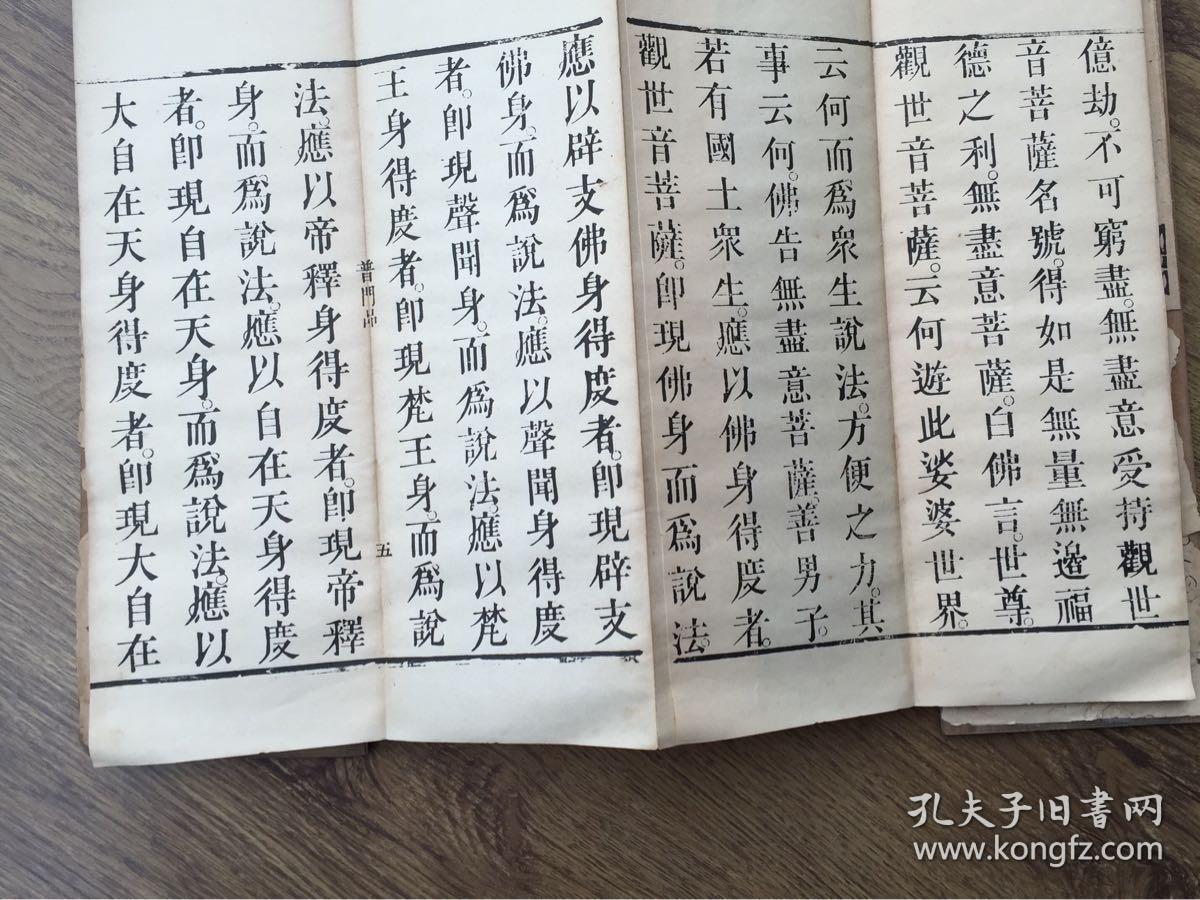 億劫。不可窮盡。無盡意受持觀世
音菩薩名號。得如是無量無邊福
德之利。無盡意菩薩。白佛言。世尊。
觀世音菩薩。云何遊此娑婆世界。
云何而爲衆生說法。方便之力。其
事云何。佛告無盡意菩薩。善男子。
若有國土衆生。應以佛身得度者。
觀世音菩薩。卽現佛身而爲說法。
應以辟支佛身得度者。卽現辟支
佛身。而爲說法。應以聲聞身得度
者。卽現聲聞身。而爲說法。應以梵
王身得度者。卽現梵王身。而爲說
普門品
五
法。應以帝釋身得度者。卽現帝釋
身。而爲說法。應以自在天身得度
者。卽現自在天身。而爲說法。應以
大自在天身得度者。卽現大自在
孔夫子旧书网
www.kongfz.com